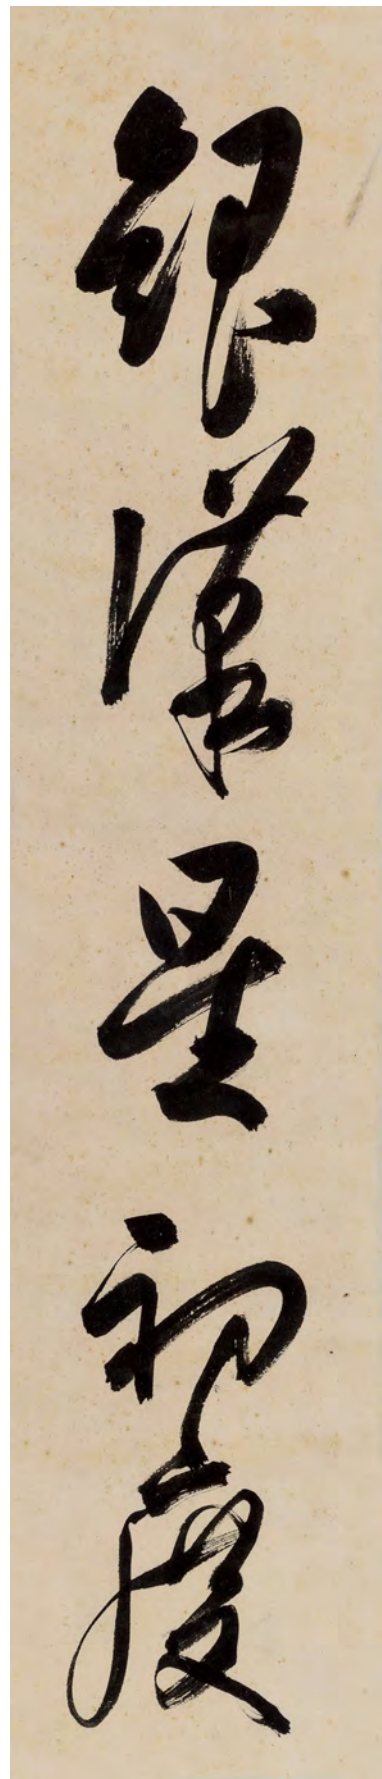 銀漢星初度